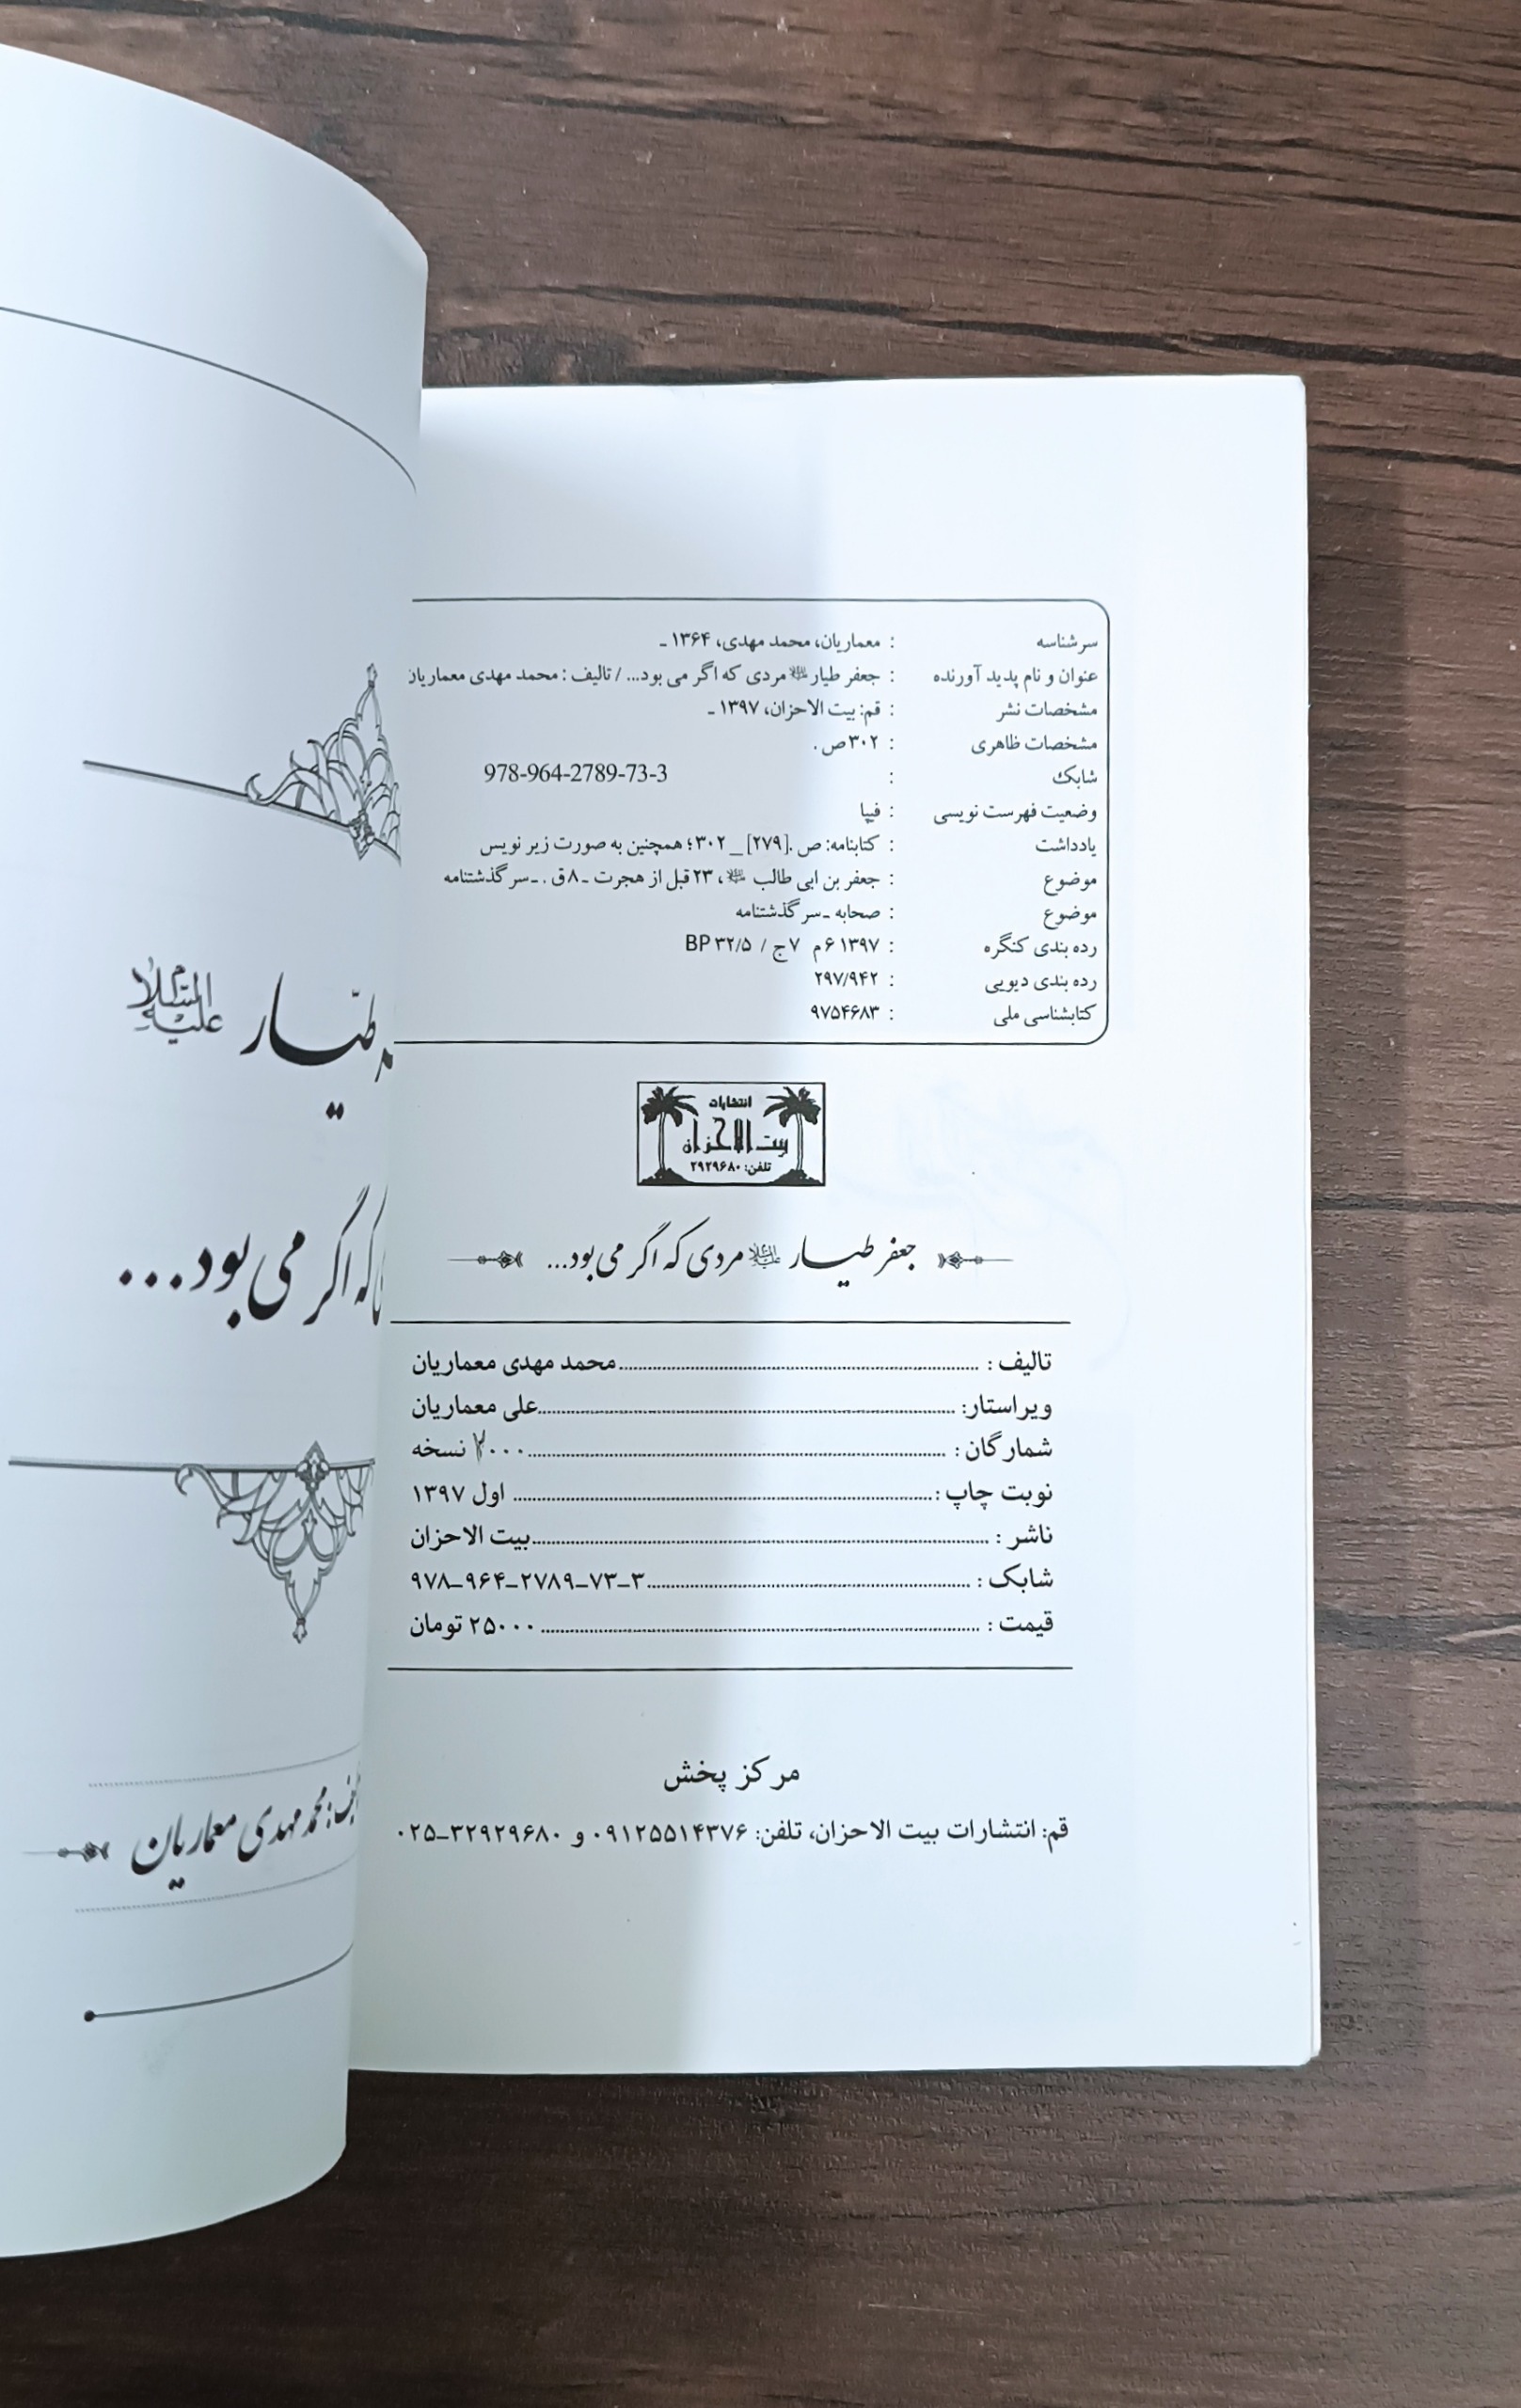 سرشناسه : معماریان، محمد مهدی، ۱۳۶۴ ـ
عنوان و نام پدید آورنده : جعفر طیار علیه‌السلام مردی که اگر می بود... / تالیف : محمد مهدی معماریان
مشخصات نشر : قم: بیت الاحزان، ۱۳۹۷ ـ
مشخصات ظاهری : ۳۰۲ص .
شابک : 978-964-2789-73-3
وضعیت فهرست نویسی : فیپا
یادداشت : کتابنامه: ص .[۲۷۹] _ ۳۰۲؛ همچنین به صورت زیر نویس
موضوع : جعفر بن ابی طالب علیه‌السلام، ۲۳ قبل از هجرت ـ ۸ق . ـ سرگذشتنامه
موضوع : صحابه ـ سرگذشتنامه
رده بندی کنگره : ۱۳۹۷ ۶م ۷ج / BP ۳۲/۵
رده بندی دیویی : ۲۹۷/۹۴۲
کتابشناسی ملی : ۹۷۵۴۶۸۳
انتشارات
بیت الاحزان
تلفن: ۲۹۲۹۶۸۰
جعفر طیار علیه‌السلام مردی که اگر می بود...
تالیف : محمد مهدی معماریان
ویراستار: علی معماریان
شمارگان : ۲۰۰۰ نسخه
نوبت چاپ : اول ۱۳۹۷
ناشر : بیت الاحزان
شابک : ۹۷۸-۹۶۴-۲۷۸۹-۷۳-۳
قیمت : ۲۵۰۰۰ تومان
مرکز پخش
قم: انتشارات بیت الاحزان، تلفن: ۰۹۱۲۵۵۱۴۳۷۶ و ۳۲۹۲۹۶۸۰-۰۲۵
طیّار علیه السلام
که اگر می بود...
محمد مهدی معماریان